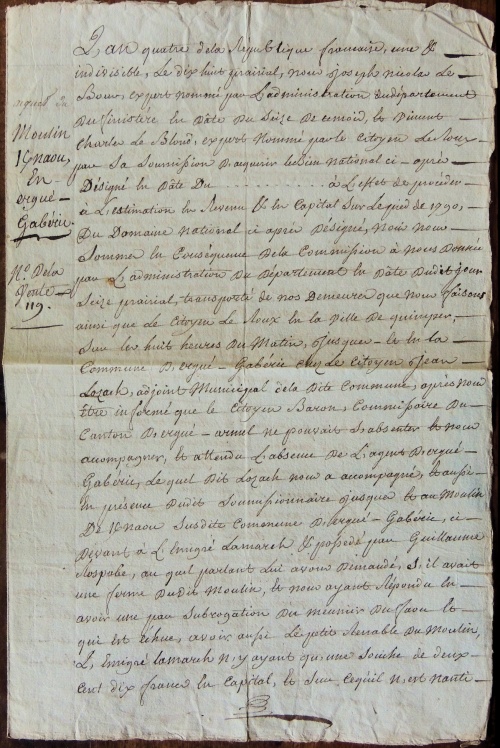 Moulin
Knaou,
En
ergué-
Gabéric
No. Dela
Vente
119.
L'an quatre dela République francaise, une &
indivisible, Le dix huit prairial, nous Joseph Nicolas Le
Bour, expert nommé par L'administration du département
Du finistere En Date Du Seize De cemois, Et Vincent
Charle Le Bloud, expert Nommé par le Citoyen Le Roux
par Sa Soumission D'acquerir Le bien National ci-après
Désigné En Date Du .................. à L'effet de procéder
à L'estimation En Revenu & En Capital Sur Le pied de 1790,
Du Domaine National ci après Désigné, Nous nous
Somme En Conséquence Dela Commission à nous Donnée
par L'administration Du Département En Date Dudit jour
Seize prairial, transporté de nos Demeures que Nous faisons
ainsi que Le Citoyen Le Roux En la Ville De quimper,
Sur les huit heures Du Matin, jusques-Et En la
Commune D'ergué-Gabéric chez Le Citoyen Jean
Lozach, adjoint Municipal dela Dite Commune, après nous
Etre informé que Le Citoyen Baron, Commissaire Du
Canton D'ergué-armel ne pouvait S'absenter Et nous
acompagner, Et attendu L'absence De L'agent D'ergué-
Gabéric, Le quel Dit Lozach nous a accompagné, Et aussi
En présence Dudit Soumissionnaire jusques Et au Moulin
De Knaou Susdite Commune D'ergué-Gabéric, ci
Devant à L'Emigré Lamarch & possedé par Guillaume
Rospabe, au quel parlant Lui avons Demandé, S'il avait
une ferme Dudit Moulin, Et nous ayant Répondu En
avoir une par Subrogation Du meunier Du faou Et
qui est Echue, avoir aussi Le petit Renable Du Moulin,
L'Emigré Lamarch N'y ayant qu'une Souche de deux-
Cent dix francs En Capital, Et Sur Cequ'il N'est Nanti-